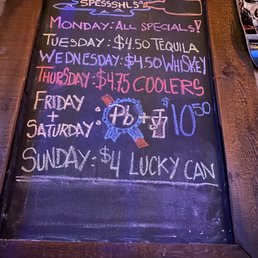 SPESSSHLS
MONDAY: ALL SPECIALS!
TUESDAY: $4.50 TEQUILA
WEDNESDAY: $4.50 WHISKEY
THURSDAY: $4.75 COOLERS
FRIDAY
+
SATURDAY: Pb + J $10.50
SUNDAY: $4 LUCKY CAN